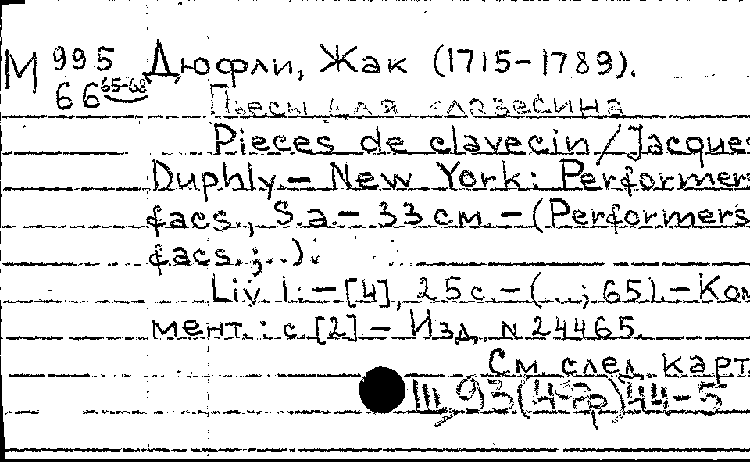 M 995 Дюфли, Жак (1715-1789).
66 65-68
Пьесы для клавесина
Pieces de clavecin/Jacques
Duphly.- New York: Performers
facs., S.a.- 33 см.- (Performers
facs.; ..).
Liv. 1.-[4], 25 с.- (..; 65).- Ком
мент.: с. [2] - Изд. N 24465.
См. след. карт.
III 93(4-Фр)44-5